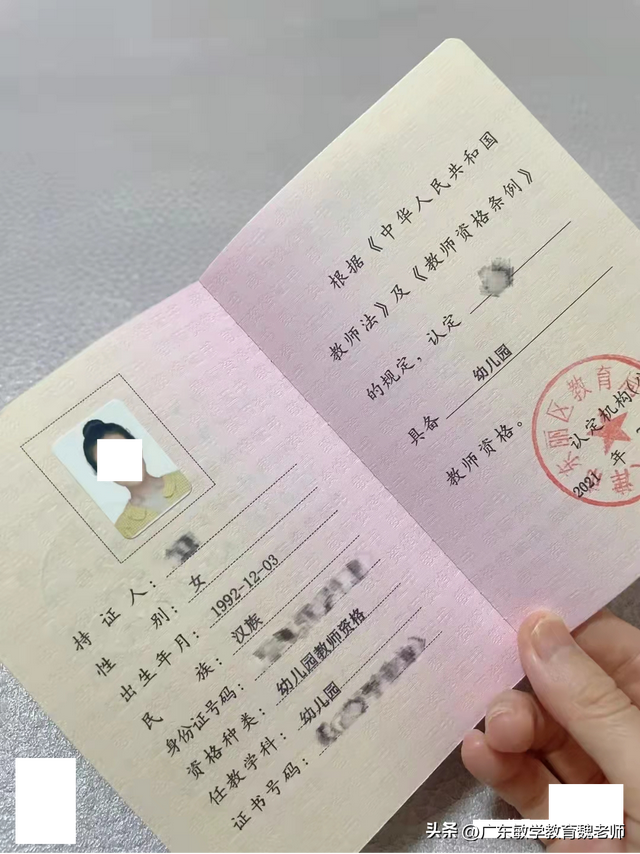 持证人：
性别：女
出生年月：1992-12-03
民族：汉族
身份证号码：
资格种类：幼儿园教师资格
任教学科：幼儿园
证书号码：
根据《中华人民共和国
教师法》及《教师资格条例》
的规定，认定
具备 幼儿园
教师资格。
东丽区教育
认定机构
2021 年
头条 @广东敏学教育魏老师